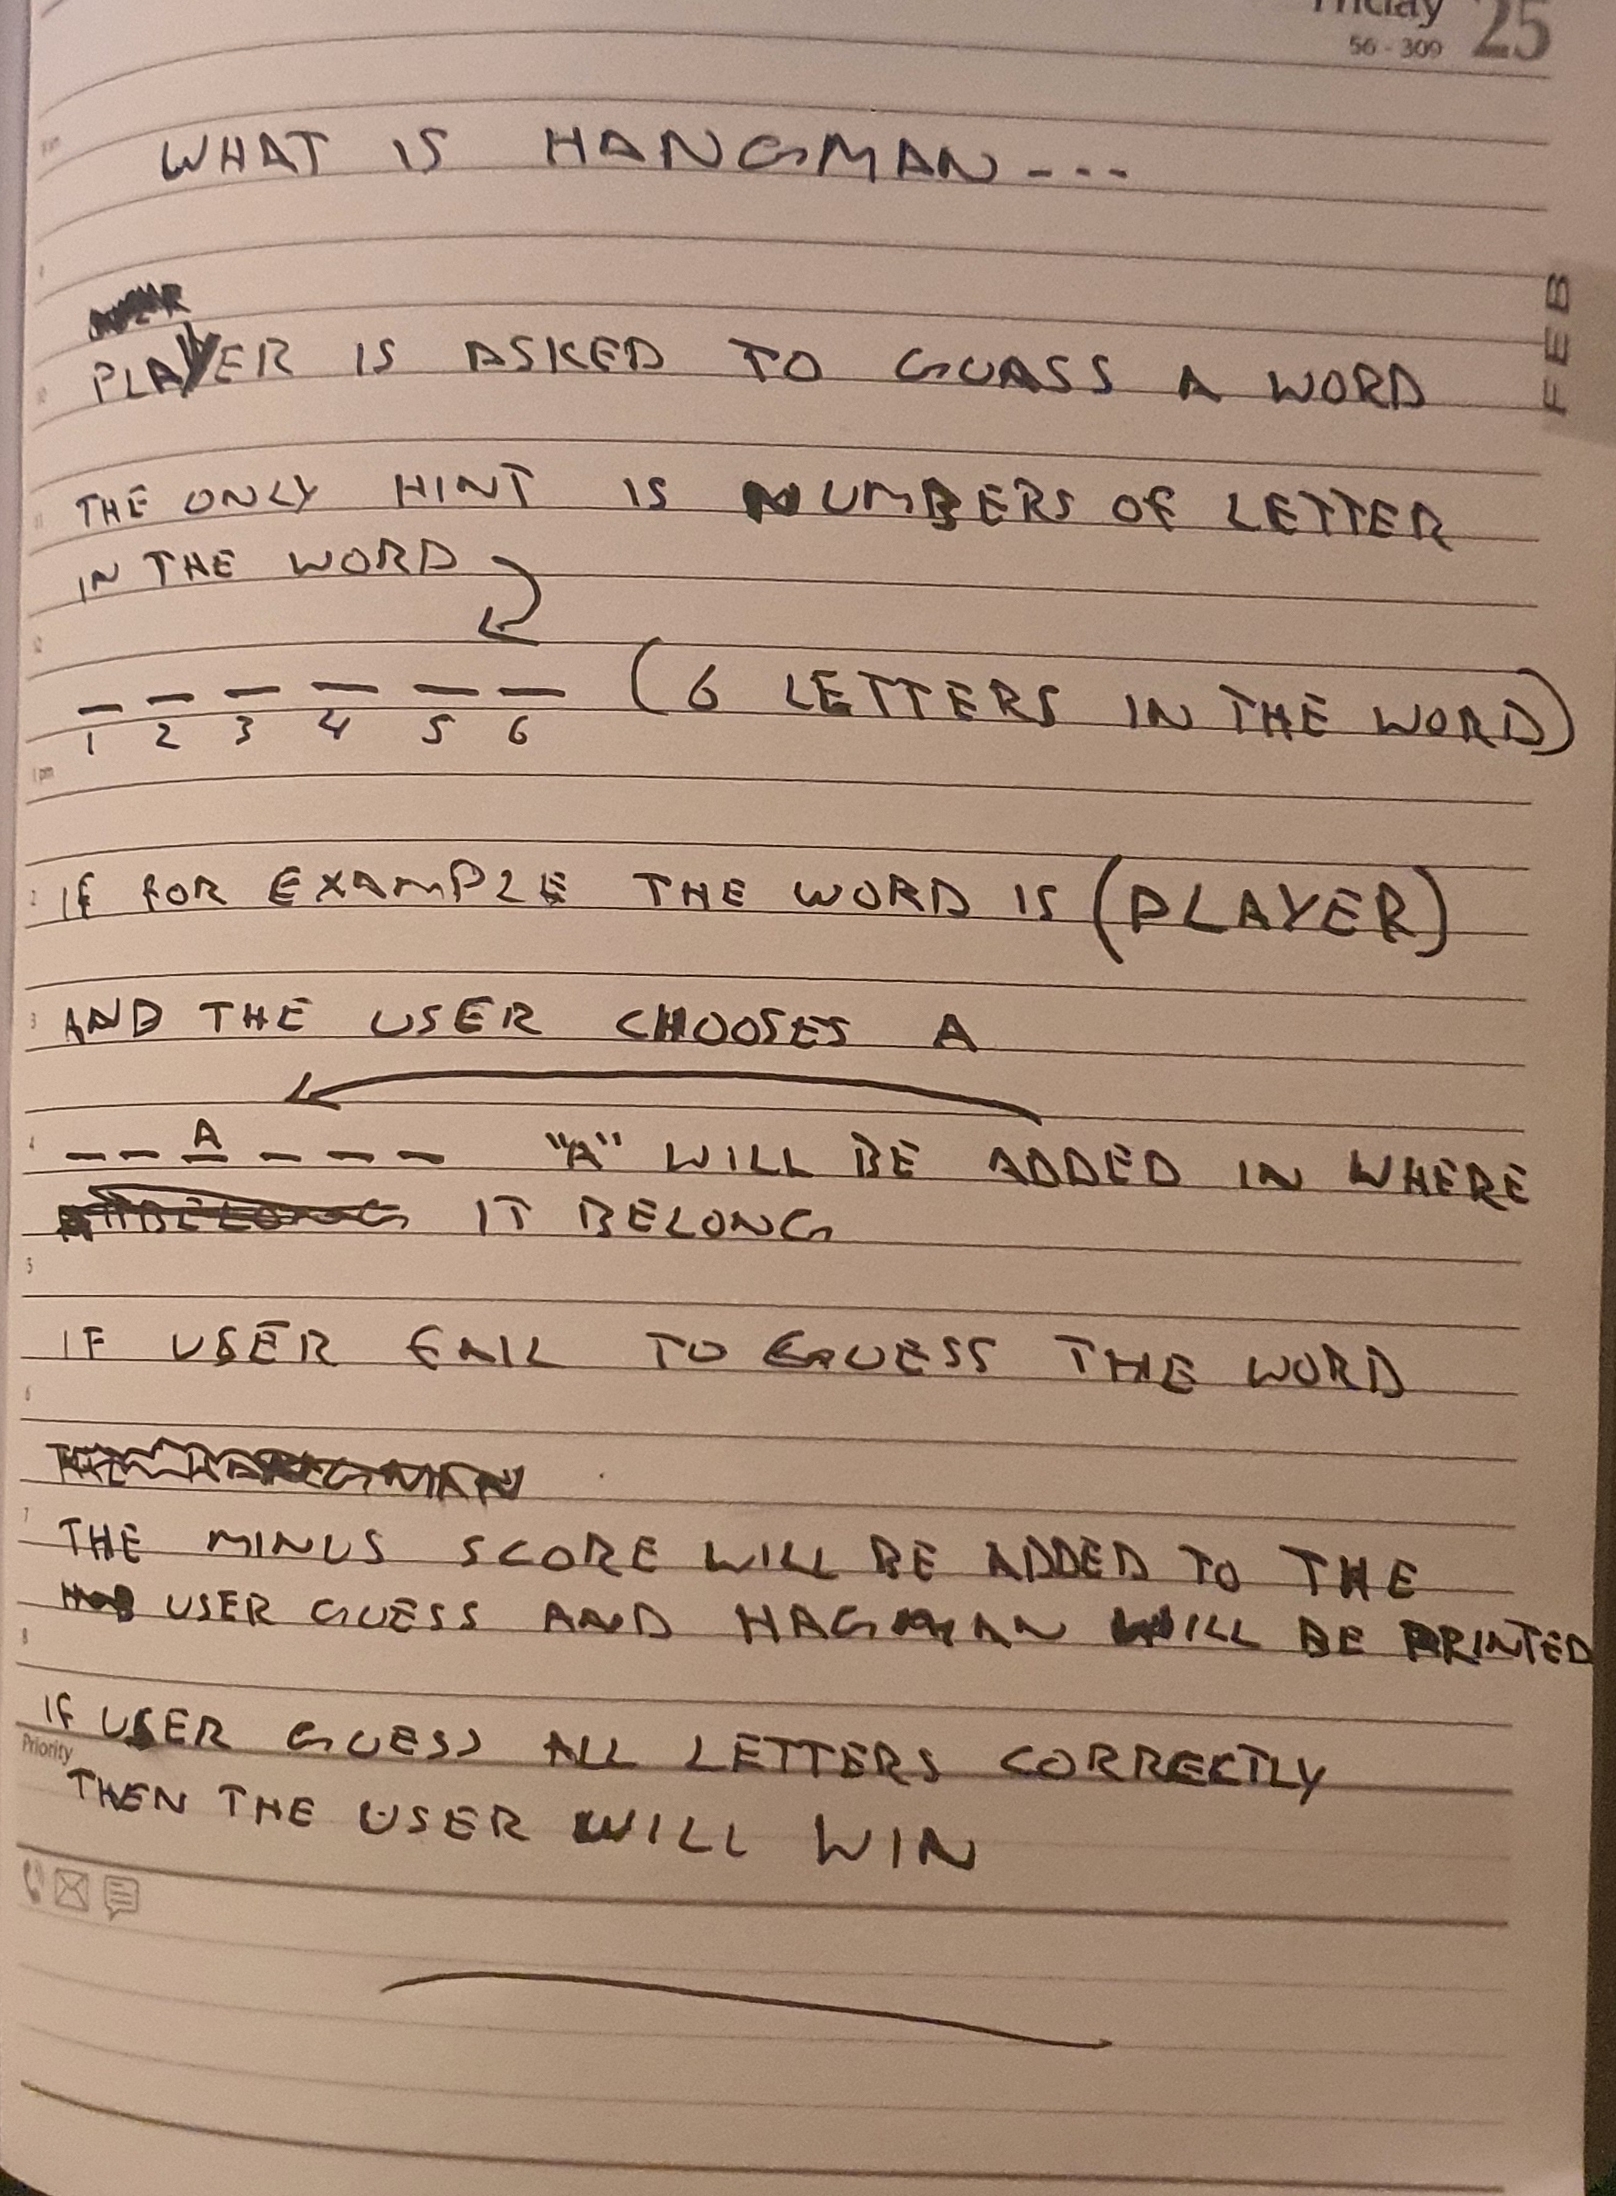 Friday 25
56 - 309
FEB
WHAT IS HANGMAN ----
PLAYER IS ASKED TO GUASS A WORD
THE ONLY HINT IS NUMBERS OF LETTER
IN THE WORD
_ _ _ _ _ _ (6 LETTERS IN THE WORD)
1 2 3 4 5 6
1 pm
2 IF FOR EXAMPLE THE WORD IS (PLAYER)
3 AND THE USER CHOOSES A
4 _ _ A _ _ _ "A" WILL BE ADDED IN WHERE
IT BELONG
5
IF USER FAIL TO GUESS THE WORD
6
7
THE MINUS SCORE WILL BE ADDED TO THE
USER GUESS AND HAGMAN WILL BE PRINTED
8
IF USER GUESS ALL LETTERS CORRECTLY
Priority
THEN THE USER WILL WIN